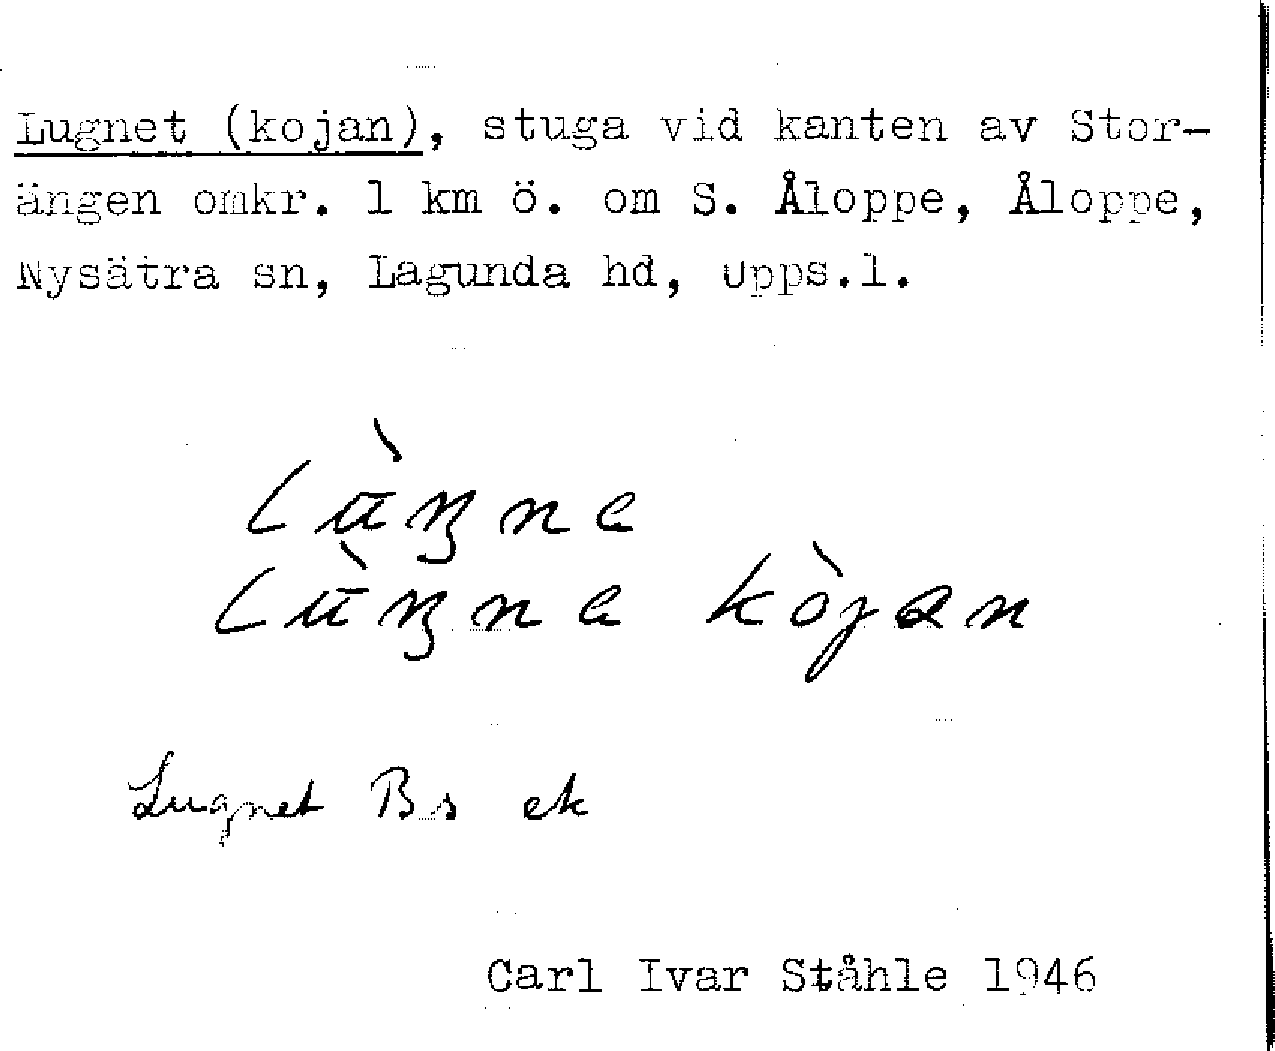 Lugnet (kojan), stuga vid kanten av Stor-
ängen omkr. 1 km ö. om S. Åloppe, Åloppe,
Nysätra sn, Lagunda hd, Upps.l.
Lugnet Bs ek
Carl Ivar Ståhle 1946